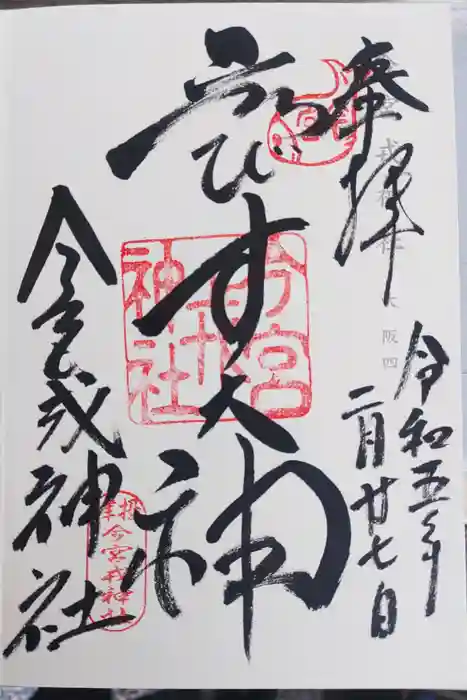 奉拝
令和五年
二月廿七日
ゑびす大神
今宮戎神社
今宮戎神社
今宮戎神社
大阪四